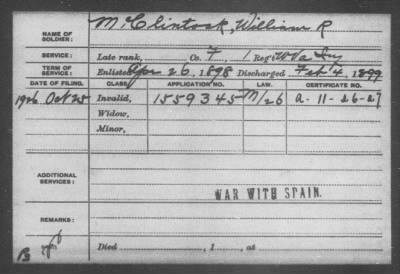 NAME OF SOLDIER: McClintock, William R
SERVICE: Late rank, Co. F, 1 Reg't W Va Inf
TERM OF SERVICE: Enlisted Apr 26, 1898 Discharged Feb 4, 1899
DATE OF FILING. CLASS. APPLICATION NO. LAW. CERTIFICATE NO.
1926 Oct 25 Invalid, 1559345 M/26 a-11-26-27
Widow,
Minor,
ADDITIONAL SERVICES:
WAR WITH SPAIN.
REMARKS:
B
Died , 1 , at